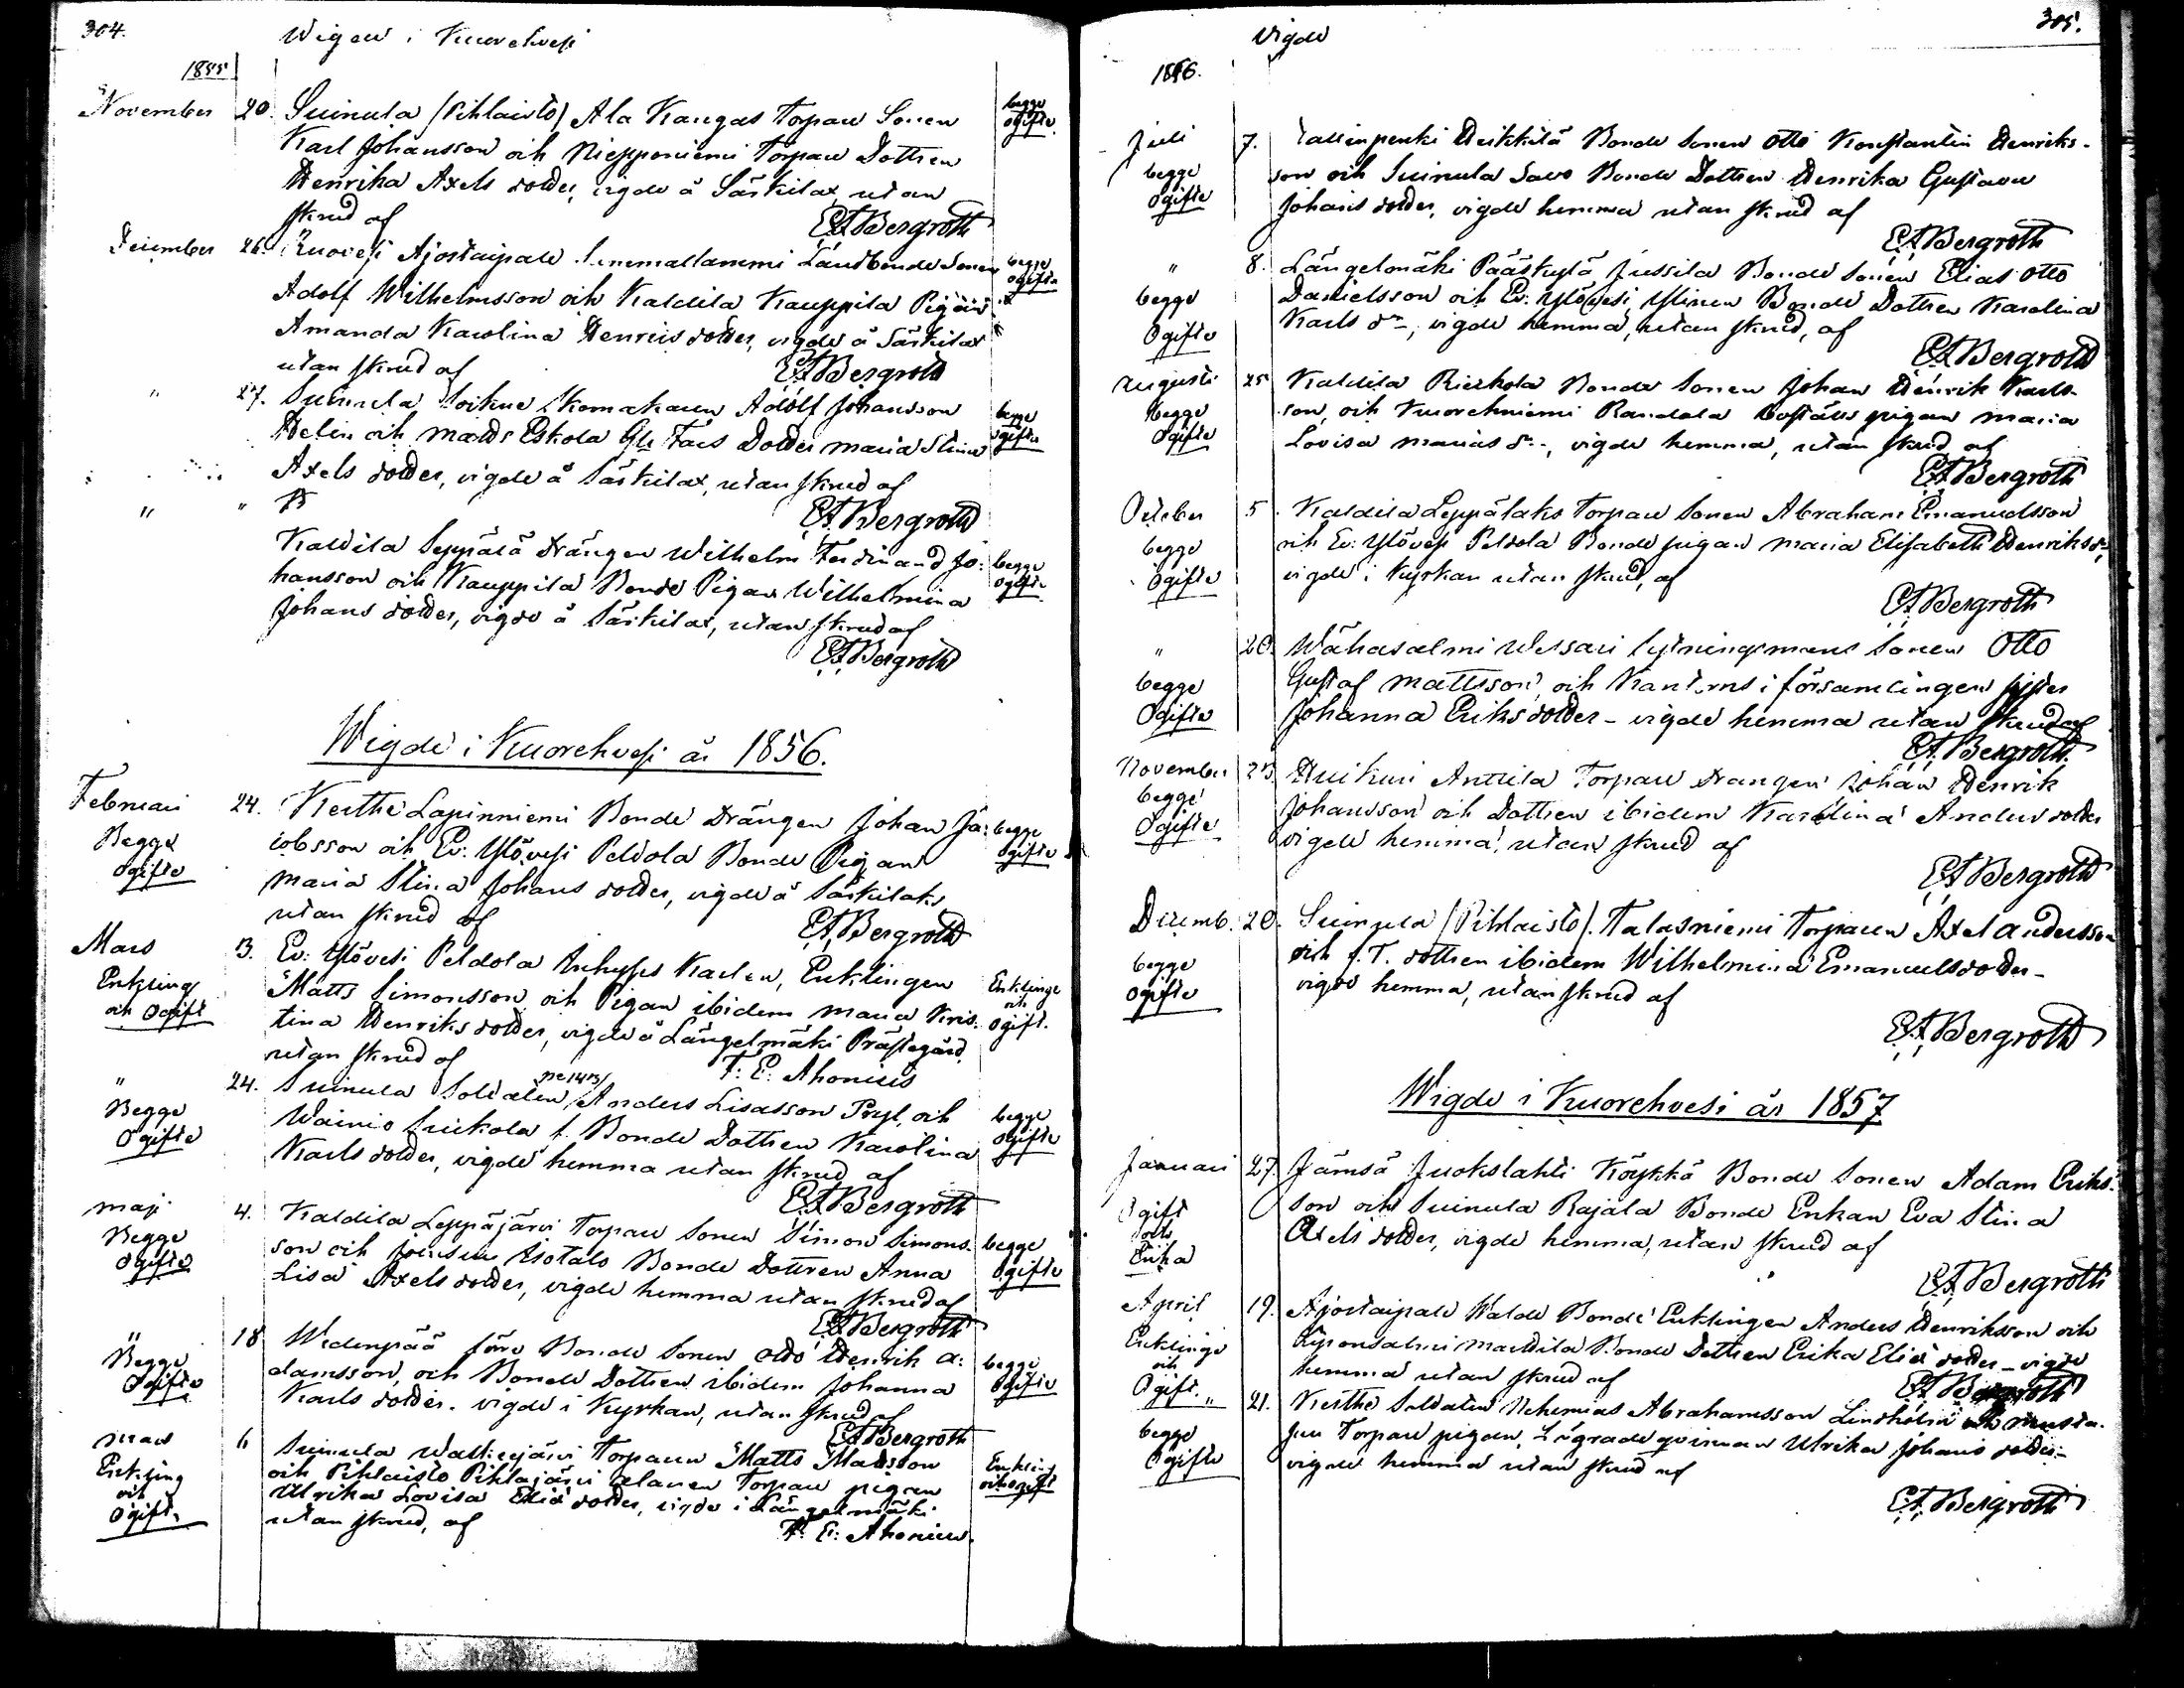 304.
Wigde i Kuorehvesi
1855
November 20. Suinula (Pihlaisto) Ala Kangas Torpare Sonen begge
Karl Johansson och Niepponiemi Torpare Dottren ogifte
Henrika Axels dotter, vigde å Särkilax, utan
skrud af
EABergroth
December 26. Ruovesi Ajostaipale Landbonde Sonen begge
Adolf Wilhelmsson och Kaldila Kauppila Pigan ogifte
Amanda Karolina Henriks dotter, vigde å Särkilax
utan skrud af EABergroth
" 27. Suinula Skomakaren Adolf Johansson begge
Helin och Matts Eskola Dotter Maria Stina ogifte
Axels dotter, vigde å Särkilax, utan skrud af
" "
EABergroth
Kaldila Seppälä Drängen Wilhelm Ferdinand Jo: begge
hansson och Kauppila Bonde Pigan Wilhelmina ogifte
Johans dotter, vigde å Särkilax, utan skrud af
EABergroth
Wigde i Kuorehvesi år 1856.
Februari 24. Kerthe Lapinniemi Bonde Drängen Johan Ja: begge
Begge cobsson och Ev: Ylövesi Peldola Bonde Pigan ogifte
ogifte Maria Stina Johans dotter, vigde å Särkilaks
utan skrud af EABergroth
Mars 13. Ev: Ylövesi Peldola Inhyses Karlen, Enklingen Enklinge
Enkling Matts Simonsson och Pigan ibidem Maria Kris- och
och Ogift tina Henriks dotter, vigde å Längelmäki Prästegård ogift.
utan skrud af F: E: Ahonius
" 24. Suinula Soldaten Anders Lisasson Pryl, och begge
Begge Wainio Suikola f. Bonde Dottren Karolina ogifte
Ogifte Karls dotter, vigde hemma utan skrud af
EABergroth
maji 4. Kaldila Leppäjärvi Torpare Sonen Simon Simons- begge
Begge son och Isotalo Bonde Dottren Anna Ogifte
Ogifte Lisa Axels dotter, vigde hemma utan skrud af
EABergroth
" 18 Wedenpää Bonde Sonen Otto Henrik A: begge
Begge damsson, och Bonde Dottren ibidem Johanna Ogifte
Ogifte Karls dotter. vigde i Kyrkan, utan skrud af
EABergroth
6 Suinula Walkejärvi Torparen Matts Matsson Enkling
Enkling och Pihlaisto Pihlajärvi Torpare pigan och ogift
och Ulrika Lovisa Elia dotter, vigde i Längelmäki
Ogift. utan skrud, af F: E: Ahonius.
Vigde
305.
1856.
Juli 7. Heikkilä Bonde Sonen Otto Konstantin Henriks-
begge son och Suinula Savo Bonde Dottren Henrika Gustava
Ogifte Johans dotter, vigde hemma utan skrud af
EABergroth
" 8. Längelmäki Pääskylä Jussila Bonde Sonen Elias Otto
begge Danielsson och Ev: Ylövesi Ylinen Bonde Dottren Karolina
Ogifte Karls dr, vigde hemma, utan skrud, af
EABergroth
Augusti 25 Kaldila Rieskola Bonde Sonen Johan Henrik Karls-
begge son, och Kuorehniemi Randala Boställs pigan Maria
Ogifte Lovisa Marias dr, vigde hemma, utan skrud af
EABergroth
October 5. Kaldila Leppälaks Torpare Sonen Abraham Emanuelsson
begge och Ev: Ylövesi Peldola Bonde pigan Maria Elisabeth Henriks dr,
Ogifte vigde i Kyrkan utan skrud, af
EABergroth
" 20. Wähäsalmi Wessari Lytningsmans Sonen Otto
begge Gustaf Mattsson, och Kantorns i församlingen syster
Ogifte Johanna Eriks dotter - vigde hemma utan skrud af
EABergroth.
November 23. Anttila Torpare Drängen Johan Henrik
begge Johansson och Dottren ibidem Karolina Anders dotter
Ogifte vigde hemma, utan skrud af
EABergroth
Decemb. 20. Suinula (Pihlaisto). Talasniemi Torparen Axel Andersson
begge och f. T. dottren ibidem Wilhelmina Emanuelsdotter-
ogifte vigde hemma, utan skrud af
EABergroth
Wigde i Kuorehvesi år 1857
Januari 27. Jämsä Juokslahti Köykkä Bonde Sonen Adam Eriks-
Ogift son och Suinula Rajala Bonde Enkan Eva Stina
och Axels dotter, vigde hemma, utan skrud af
Enka
EABergroth
April 19. Ajostaipale Walde Bonde Enklingen Anders Henriksson och
Enklinge Marttila Bonde Dottren Erika Elia dotter - vigde
och hemma utan skrud af EABergroth
Ogift. " 21. Kerthe Soldaten Nehemias Abrahamsson Lindholm och
begge Torpare pigan, Lägrade qvinnan Ulrika Johans dotter-
Ogifte vigde hemma utan skrud af
EABergroth